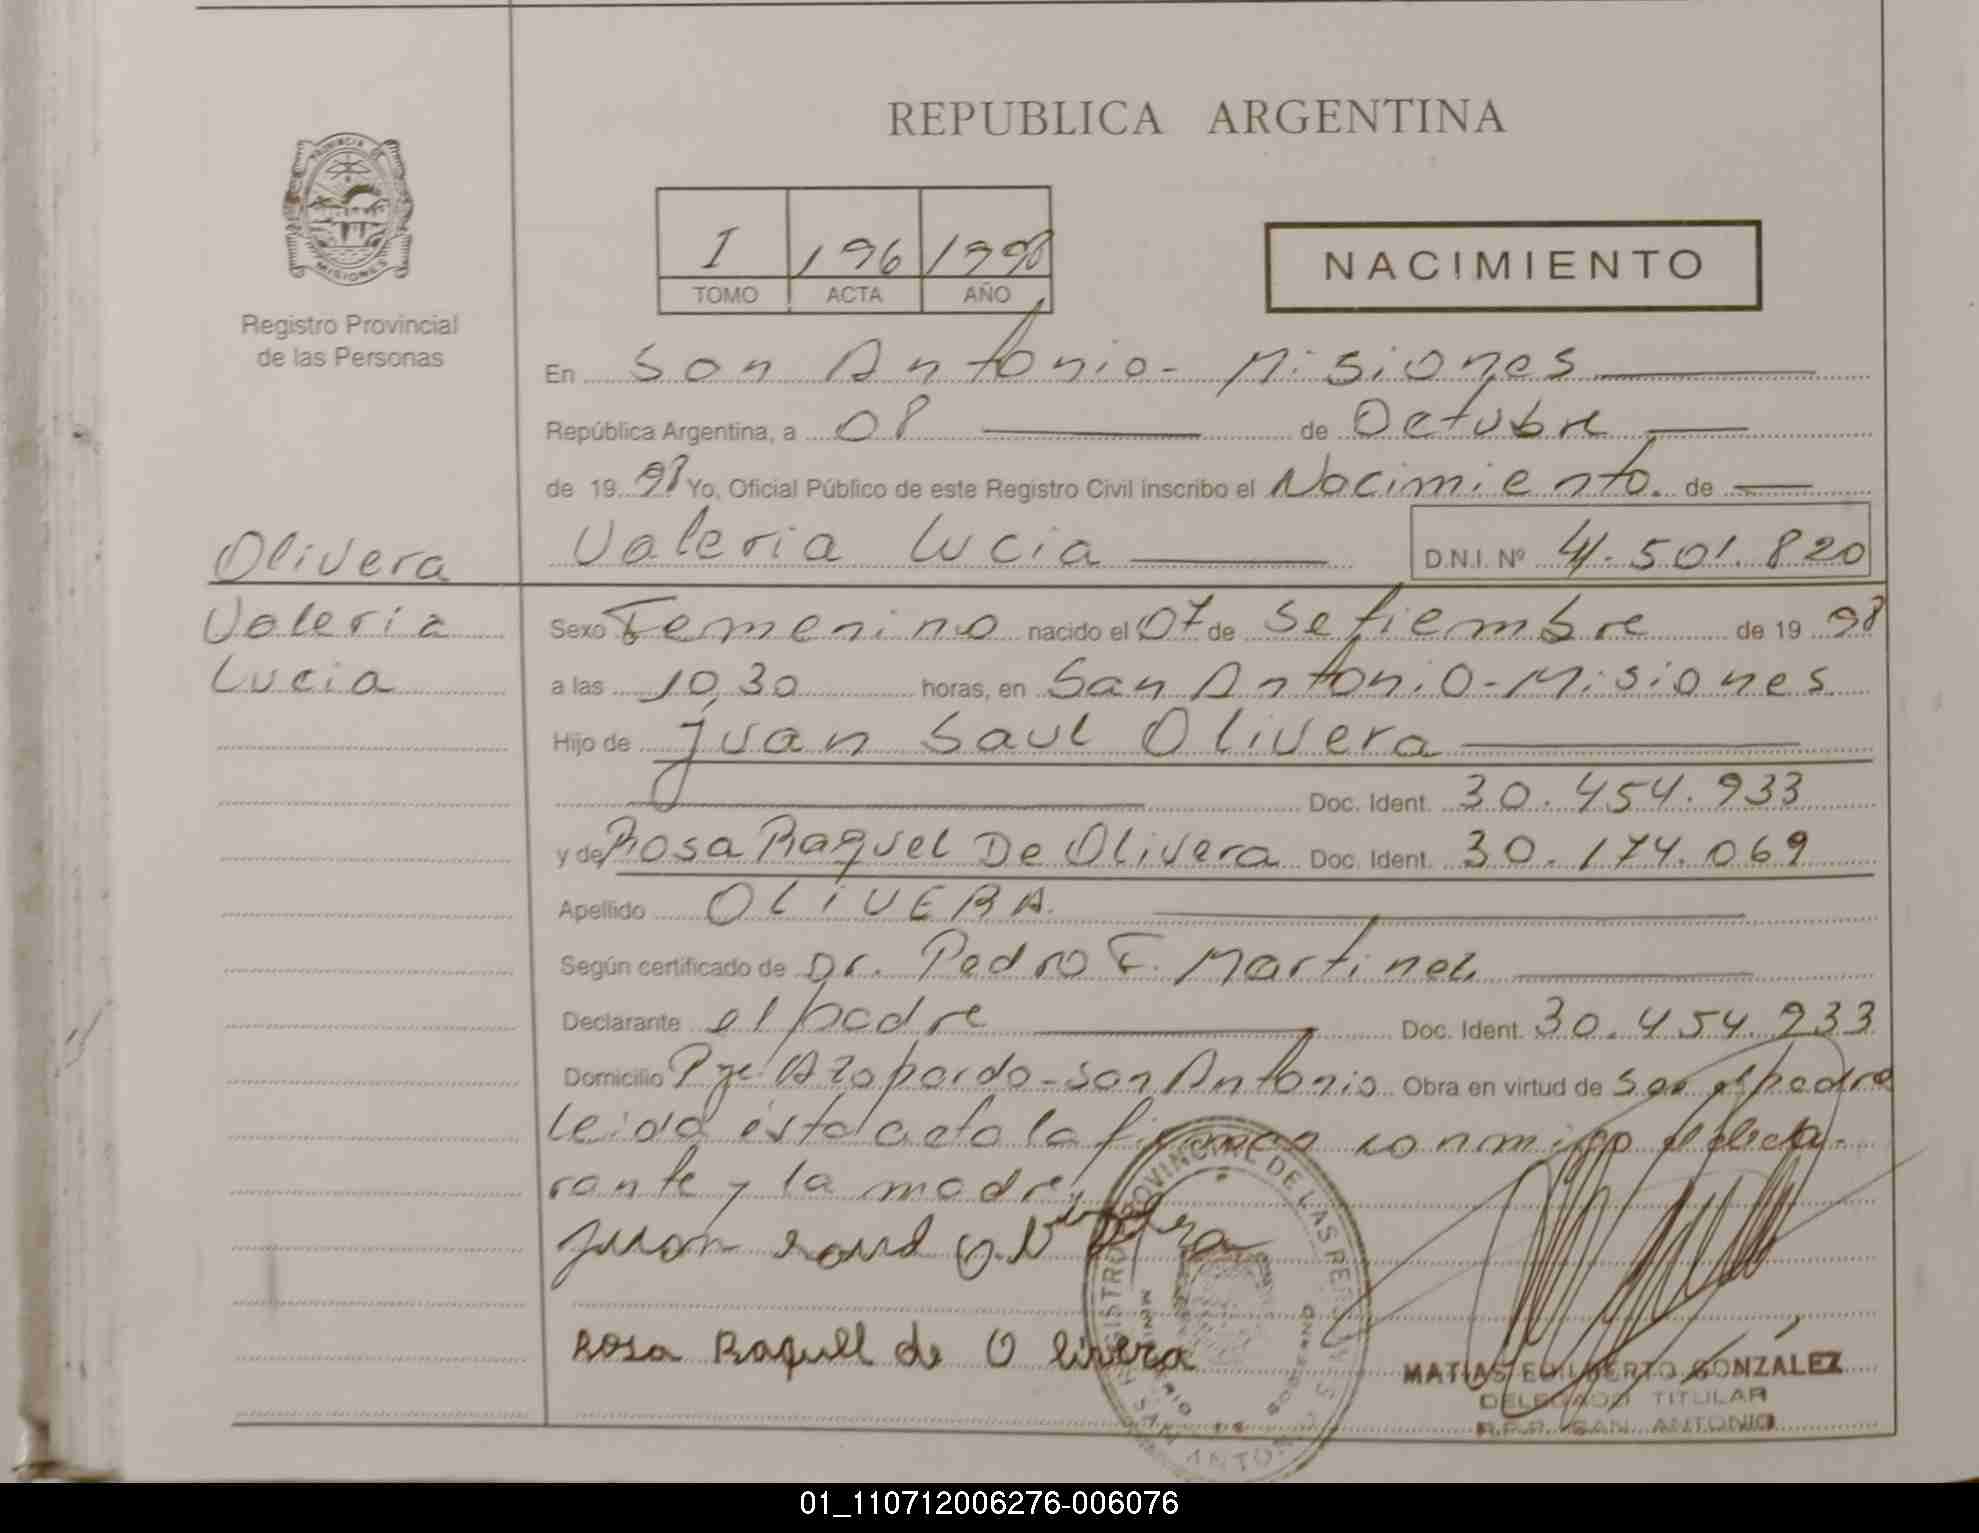 REPUBLICA ARGENTINA
PROVINCIA DE
MISIONES
Registro Provincial
de las Personas
I 196 1998
TOMO ACTA AÑO
NACIMIENTO
En San Antonio - Misiones
República Argentina, a 08 de Octubre
de 1998 Yo, Oficial Público de este Registro Civil inscribo el Nacimiento. de
Olivera Valeria Lucia D.N.I. Nº 41.501.820
Valeria Sexo Femenino nacido el 07 de Setiembre de 1998
Lucia a las 10,30 horas, en San Antonio - Misiones
Hijo de Juan Saul Olivera
Doc. Ident. 30.454.933
y de Rosa Raquel De Olivera Doc. Ident. 30.174.069
Apellido OLIVERA.
Según certificado de Dr. Pedro F. Martinez
Declarante el padre Doc. Ident. 30.454.933
Domicilio Pje. Azopardo - San Antonio Obra en virtud de Ser el padre
Leida ésta acta la firman conmigo el decla-
rante y la madre,
Juan Saul Olivera
Rosa Raquell de Olivera
REGISTRO PROVINCIAL DE LAS PERSONAS
MINISTERIO DE GOBIERNO
SAN ANTONIO
MATIAS EDILBERTO GONZALEZ
DELEGADO TITULAR
R.P.P. SAN ANTONIO
01_110712006276-006076